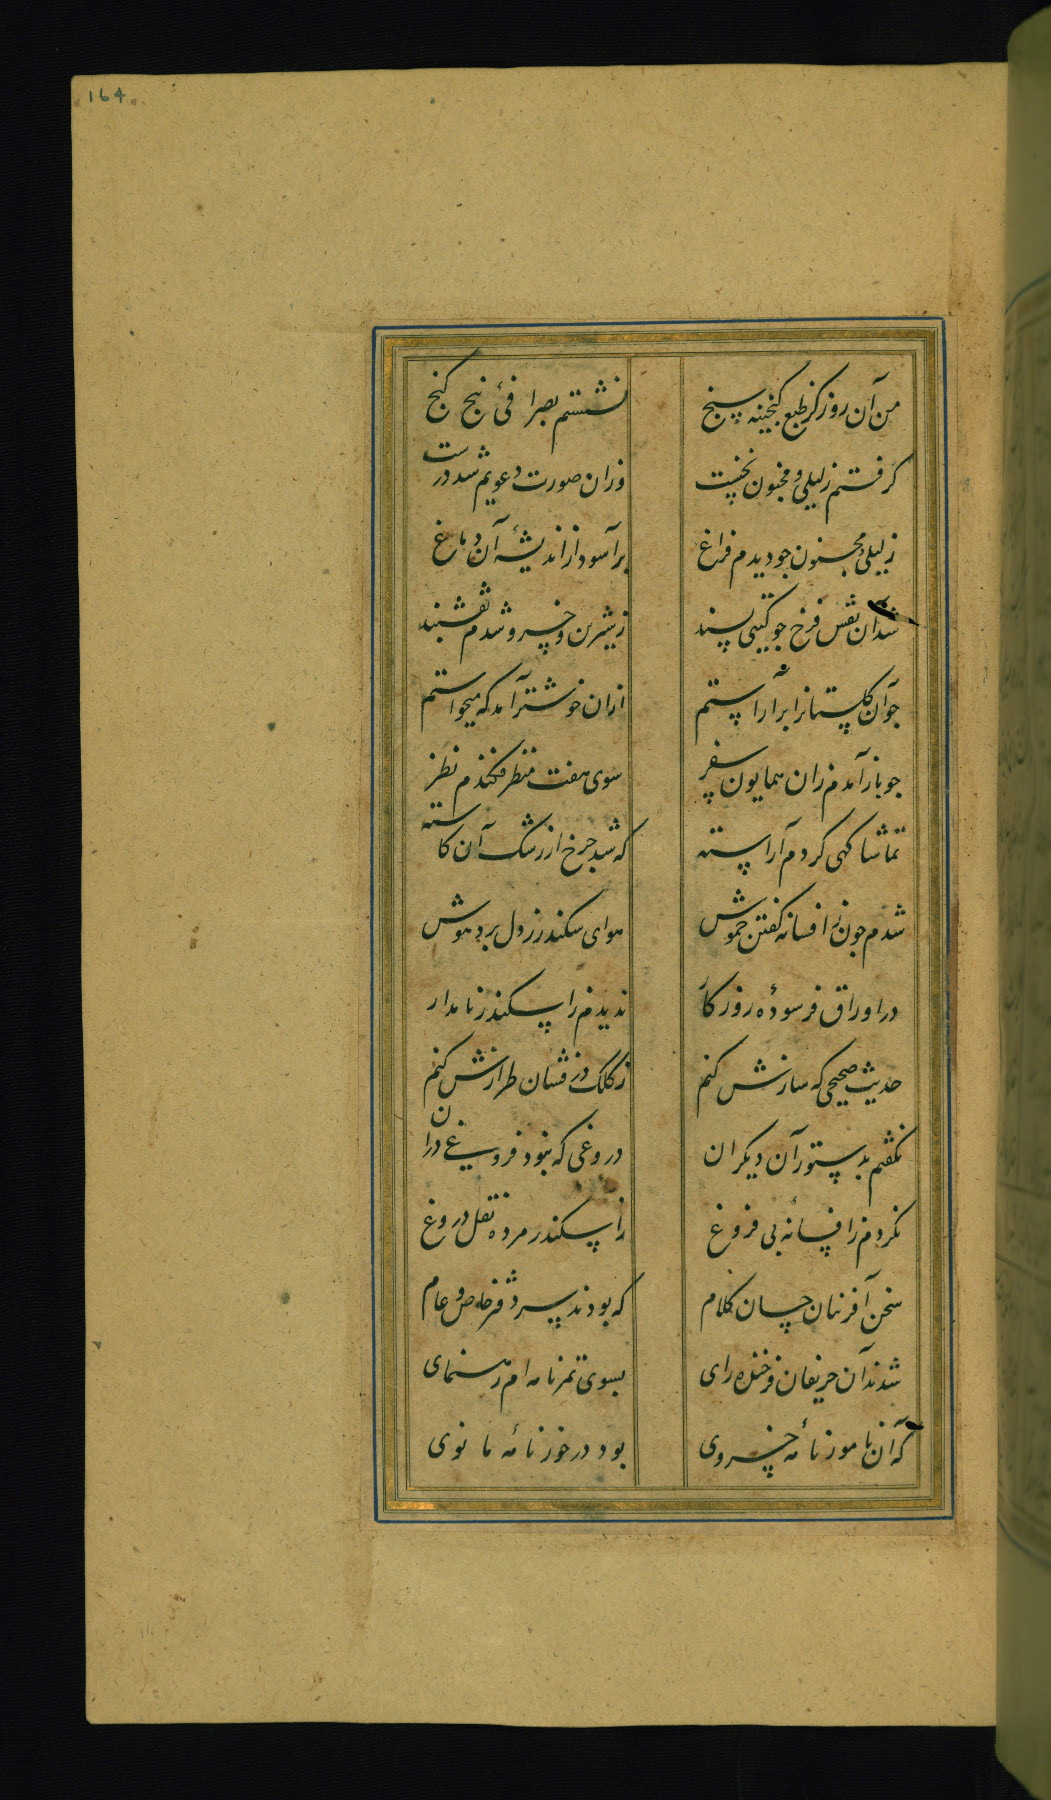 164
من آن روز کز طبع کنجینه سنج نشستم بصرافئ پنج کنج
کرفتم ز لیلی و مجنون نخست وزان صورت دعویم شد درست
ز لیلی و مجنون جو دیدم فراغ برآسود از اندیشهٔ آن دماغ
شد آن نقش فرخ جو کیتی پسند ز شیرین و خسرو شدم نقشبند
جو آن کلستانرا برآراستم ازان خوشتر آمد که میخواستم
جو باز آمدم زان همایون سفر سوی هفت منظر فکندم نظر
تماشا کهی کردم آراسته که شد جرخ از رشک آن کاسته
شدم جون ز افسانه کفتن خموش هوای سکندر ز دل برد هوش
در اوراق فرسودهٔ روزکار ندیدم ز اسکندر نامدار
حدیث صحیحی که سازش کنم ز کلک در فشان طرازش کنم
نکفتم بدستور آن دیکران دروغی که نبود فروغی دران
نکردم ز افسانهٔ بی فروغ ز اسکندر مرده نقل دروغ
سخن آفرینان جسان کلام که بودند سردفتر خاص و عام
شدند آن حریفان فرخنده رای بسوی تمرنامه ام رهنمای
که آن نامور نامهٔ خسروی بود در خور نامهٔ مانوی